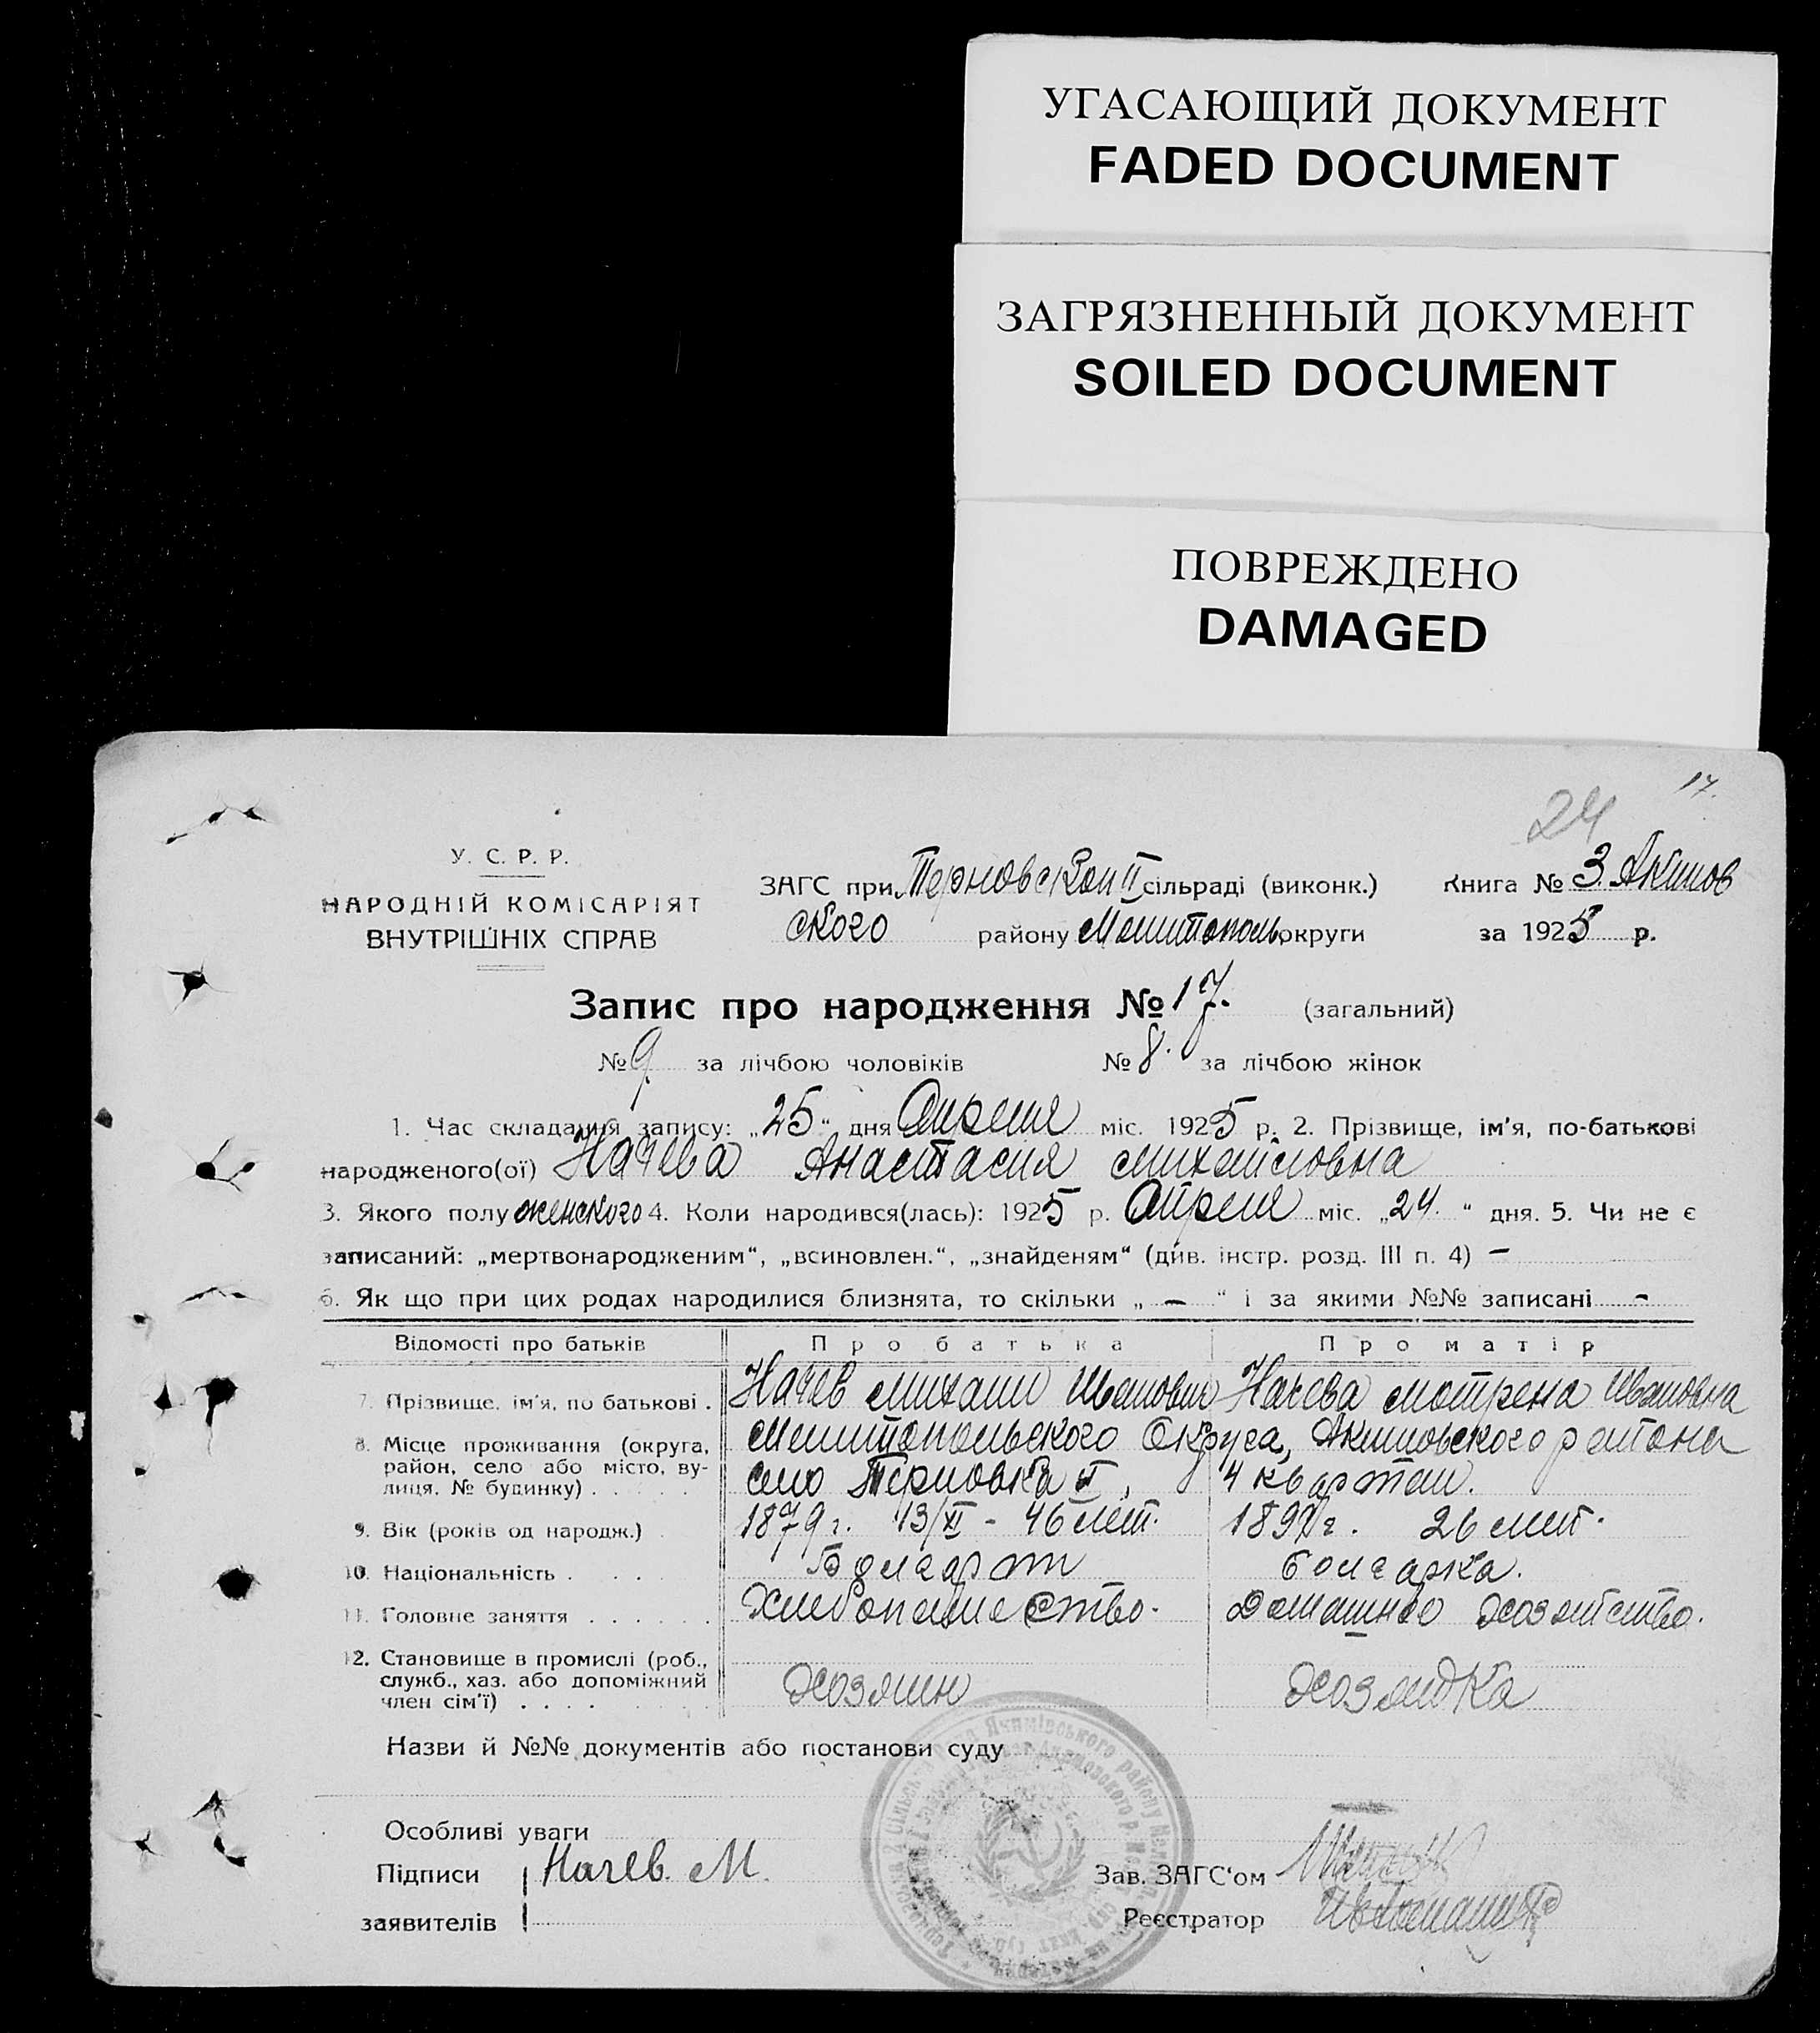 УГАСАЮЩИЙ ДОКУМЕНТ
FADED DOCUMENT
ЗАГРЯЗНЕННЫЙ ДОКУМЕНТ
SOILED DOCUMENT
ПОВРЕЖДЕНО
DAMAGED
17.
24
У. С. Р. Р.
НАРОДНІЙ КОМІСАРІЯТ
ВНУТРІШНІХ СПРАВ
ЗАГС при Терновской II сільраді (виконк.) Книга № 3 Акимов
ского району Мелитополь округи за 1925 р.
Запис про народження № 17. (загальний)
№ 9 за лічбою чоловіків № 8. за лічбою жінок
1. Час складання запису: „25“ дня Апреля міс. 1925 р. 2. Прізвище, ім'я, по-батькові
народженого(ої) Начева Анастасия Михайловна
3. Якого полу женского 4. Коли народився(лась): 1925 р. Апреля міс. „24.“ дня. 5. Чи не є
записаний: „мертвонародженим“, „всиновлен.“, „знайденям“ (див. інстр. розд. III п. 4) –
6. Як що при цих родах народилися близнята, то скільки „ – “ і за якими №№ записані –
Відомості про батьків Про батька Про матір
7. Прізвище, ім'я, по батькові . Начев Михаил Иванович Начева Мотрена Ивановна
8. Місце проживання (округа, район, село або місто, вулиця, № будинку) . . . . . Мелитопольского Округа, Акимовского района
село Терновка II, 4 квартал.
9. Вік (років од народж.) 1879 г. 13/XI - 46 лет. 26 лет.
10. Національність . . . . Болгарин болгарка.
11. Головне заняття . . . . . . Хлебопашество. Домашнее хозяйство.
12. Становище в промислі (роб., служб., хаз. або допоміжний член сім'ї) . . . . Хозяин хозяйка
Назви й №№ документів або постанови суду
Особливі уваги
Підписи Начев. М.
заявителів
Зав. ЗАГС'ом
Реєстратор